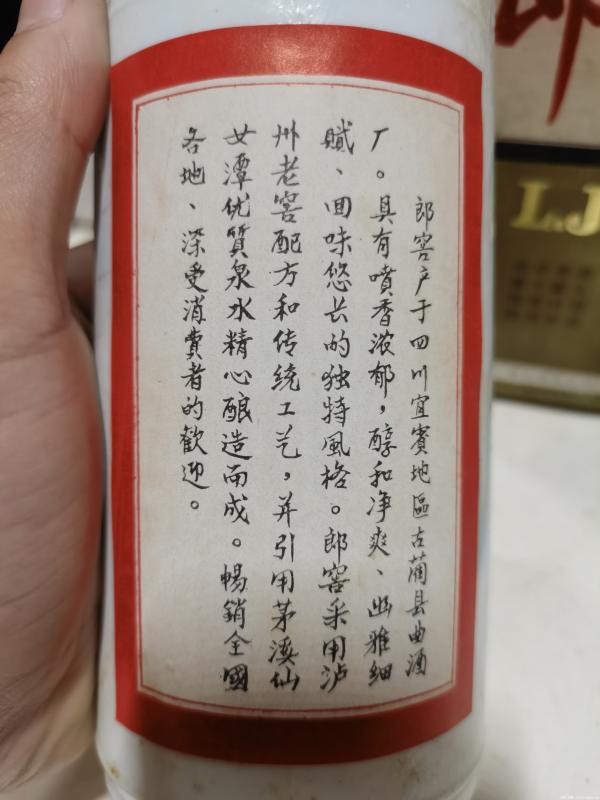 郎窖产于四川宜賓地區古藺县曲酒
厂。具有噴香浓郁，醇和净爽、幽雅细
腻、回味悠长的独特風格。郎窖采用泸
州老窖配方和传统工艺，并引用茅溪仙
女潭优質泉水精心酿造而成。畅銷全國
各地、深受消費者的歡迎。
郎
L&J